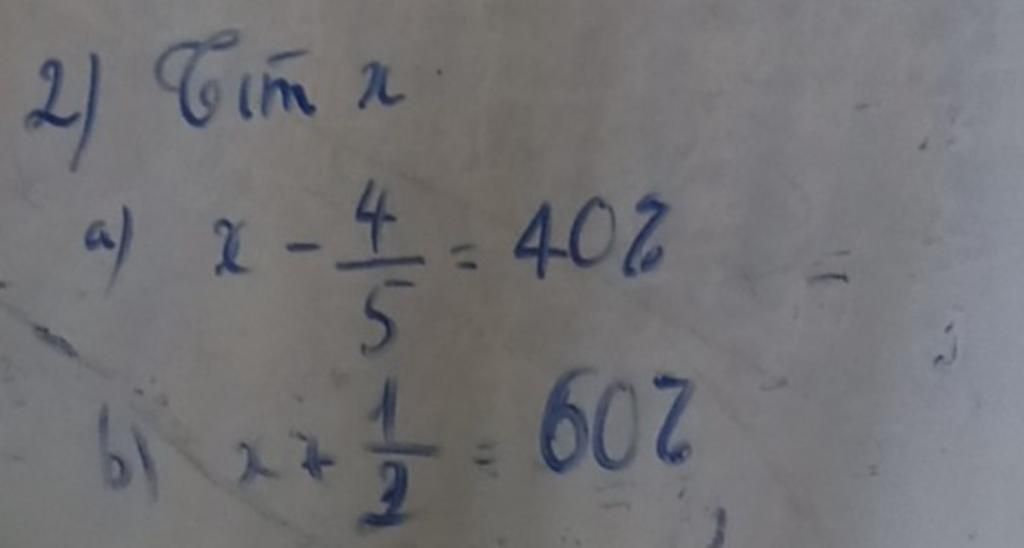 2) Tìm x
a) x - 4/5 = 402
b) x + 1/2 = 602